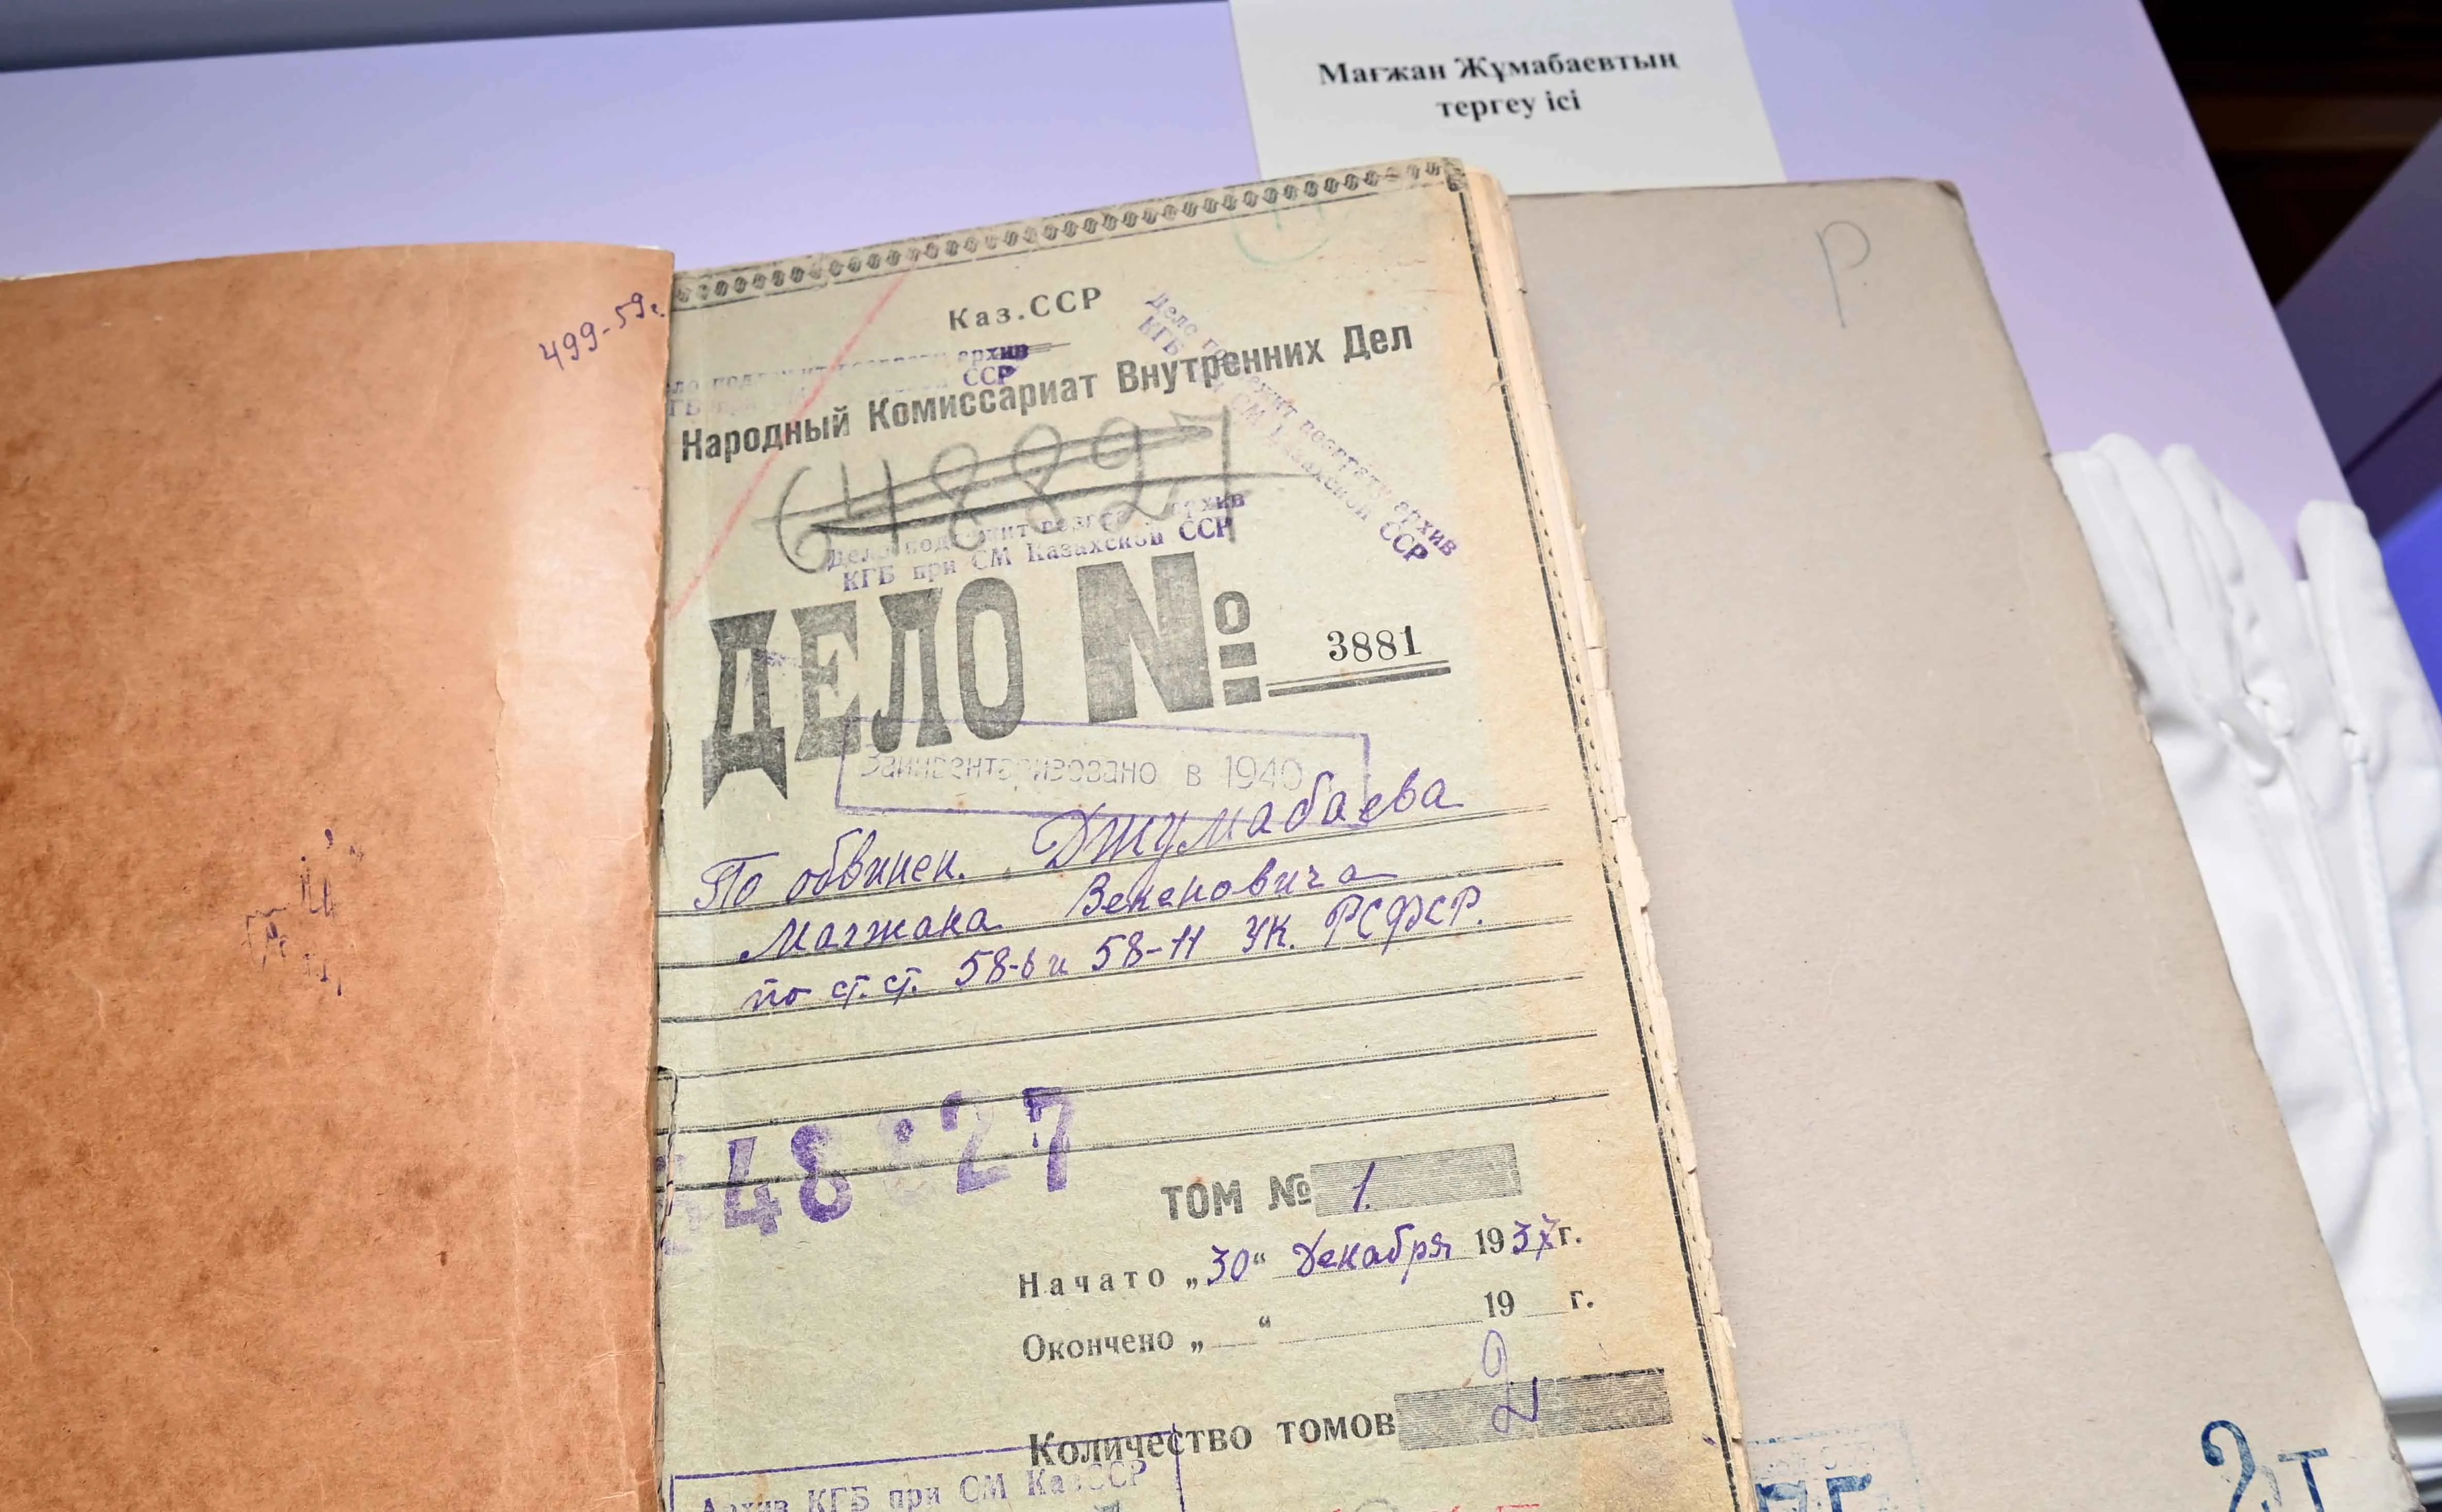 Мағжан Жұмабаевтың
тергеу ісі
Р
499-59г.
Каз.ССР
Народный Комиссариат Внутренних Дел
архив
ССР
Дело подлежит возврату архив
КГБ при СМ Казахской ССР
648827
Дело подлежит возврату архив
КГБ при СМ Казахской ССР
ДЕЛО № 3881
Заинвентаризовано в 1940
По обвинен. Джумабаева
Магжана Бекеновича
по ст.ст. 58-6 и 58-11 УК. РСФСР.
48827
ТОМ № 1.
Начато „30“ Декабря 1937г.
Окончено „ “ 19 г.
Количество томов 2
Архив КГБ при СМ КазССР
2т